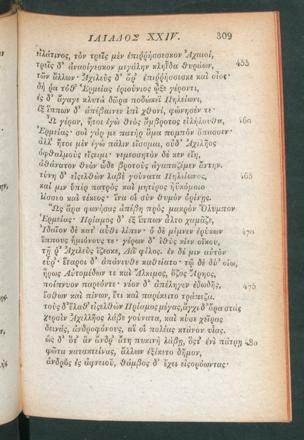 ΙΛΙΑΔΟΣ XXIV. 309
εἰλάτινος, τὸν τρεῖς μὲν ἐπιῤῥήσσεσκον Ἀχαιοί,
τρεῖς δ' ἀναοίγεσκον μεγάλην κληῗδα θυράων,
455
τῶν ἄλλων· Ἀχιλεὺς δ' ἄρ' ἐπιῤῥήσσεσκε καὶ οἶος·
δή ῥα τόθ' Ἑρμείας ἐριούνιος ᾦξε γέροντι,
ἐς δ' ἄγαγε κλυτὰ δῶρα ποδώκεϊ Πηλείωνι,
ἐξ ἵππων δ' ἀπέβαινεν ἐπὶ χθονί, φώνησέν τε·
Ὦ γέρον, ἤτοι ἐγὼ θεὸς ἄμβροτος εἰλήλουθα,
460
Ἑρμείας· σοὶ γάρ με πατὴρ ἅμα πομπὸν ὄπασσεν·
ἀλλ' ἤτοι μὲν ἐγὼ πάλιν εἴσομαι, οὐδ' Ἀχιλῆος
ὀφθαλμοὺς εἴσειμι· νεμεσσητὸν δέ κεν εἴη,
ἀθάνατον θεὸν ὧδε βροτοὺς ἀγαπαζέμεν ἄντην.
τύνη δ' εἰσελθὼν λαβὲ γούνατα Πηλείωνος,
465
καί μιν ὑπὲρ πατρὸς καὶ μητέρος ἠϋκόμοιο
λίσσεο καὶ τέκεος· ἵνα οἱ σὺν θυμὸν ὀρίνῃς.
Ὣς ἄρα φωνήσας ἀπέβη πρὸς μακρὸν Ὄλυμπον
Ἑρμείας· Πρίαμος δ' ἐξ ἵππων ἆλτο χαμᾶζε,
Ἰδαῖον δὲ κατ' αὖθι λίπεν· ὁ δὲ μίμνεν ἐρύκων
470
ἵππους ἡμιόνους τε· γέρων δ' ἰθὺς κίεν οἴκου,
τῇ ῥ' Ἀχιλεὺς ἵζεσκε, Διῒ φίλος. ἐν δέ μιν αὐτὸν
εὗρ'· ἕταροι δ' ἀπάνευθε καθείατο· τῷ δὲ δύ' οἴω,
ἥρως Αὐτομέδων τε καὶ Ἄλκιμος, ὄζος Ἄρηος,
ποίπνυον παρεόντε· νέον δ' ἀπέληγεν ἐδωδῆς,
475
ἔσθων καὶ πίνων, ἔτι καὶ παρέκειτο τράπεζα.
τοὺς δ' ἔλαθ' εἰσελθὼν Πρίαμος μέγας, ἄγχι δ' ἄρα στὰς
χερσὶν Ἀχιλλῆος λάβε γούνατα, καὶ κύσε χεῖρας
δεινάς, ἀνδροφόνους, αἵ οἱ πολέας κτάνον υἷας.
ὡς δ' ὅτ' ἂν ἄνδρ' ἄτη πυκινὴ λάβῃ, ὅστ' ἐνὶ πάτρῃ
480
φῶτα κατακτείνας, ἄλλων ἐξίκετο δῆμον,
ἀνδρὸς ἐς ἀφνειοῦ, θάμβος δ' ἔχει εἰσορόωντας·